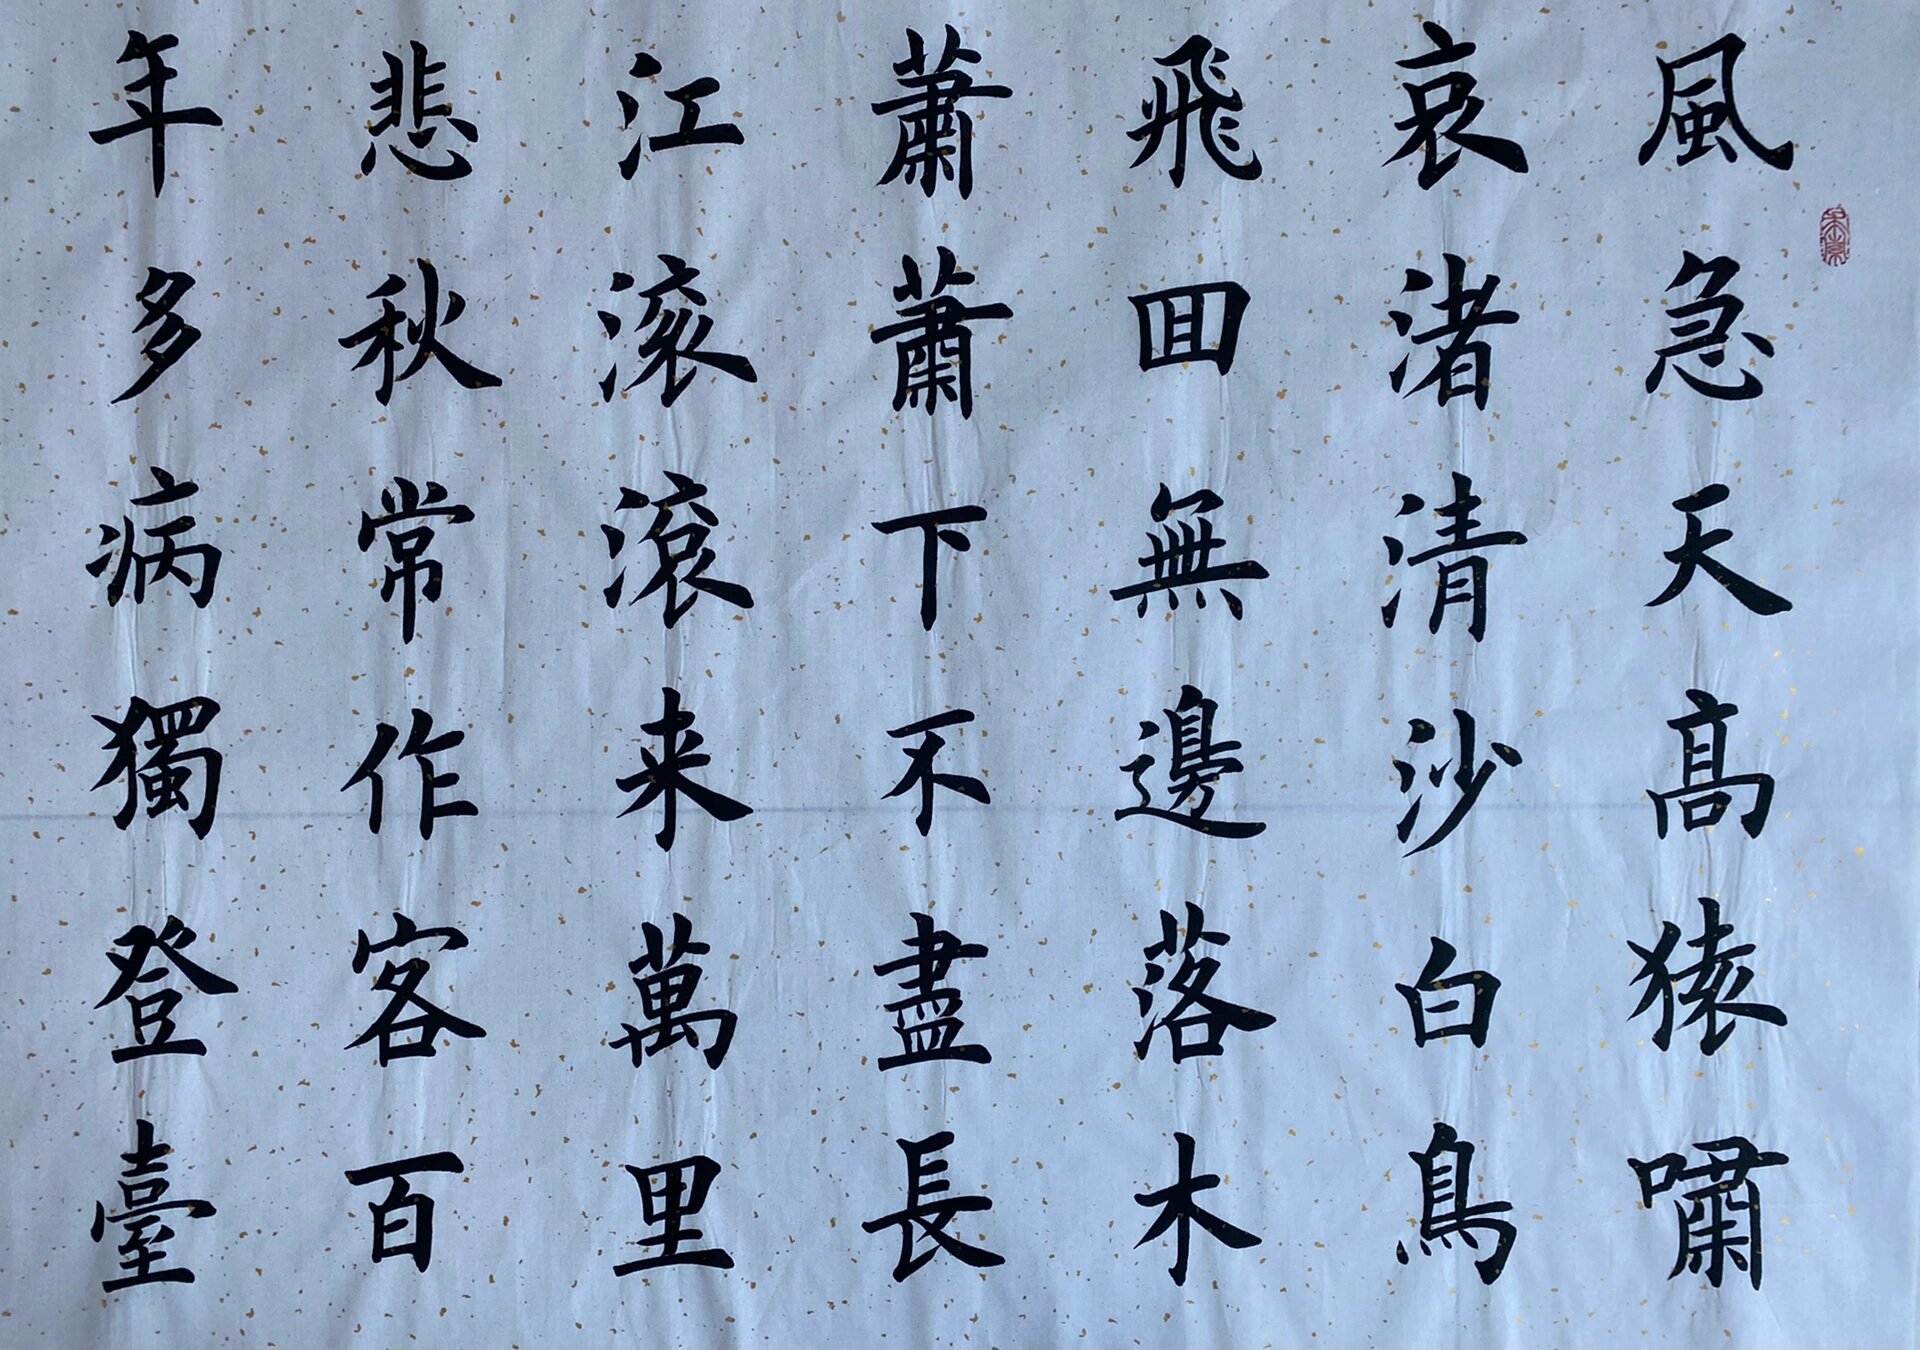 風急天髙猿嘯
哀渚清沙白鳥
飛回無邊落木
蕭蕭下不盡長
江滚滾来萬里
悲秋常作客百
年多病獨登臺